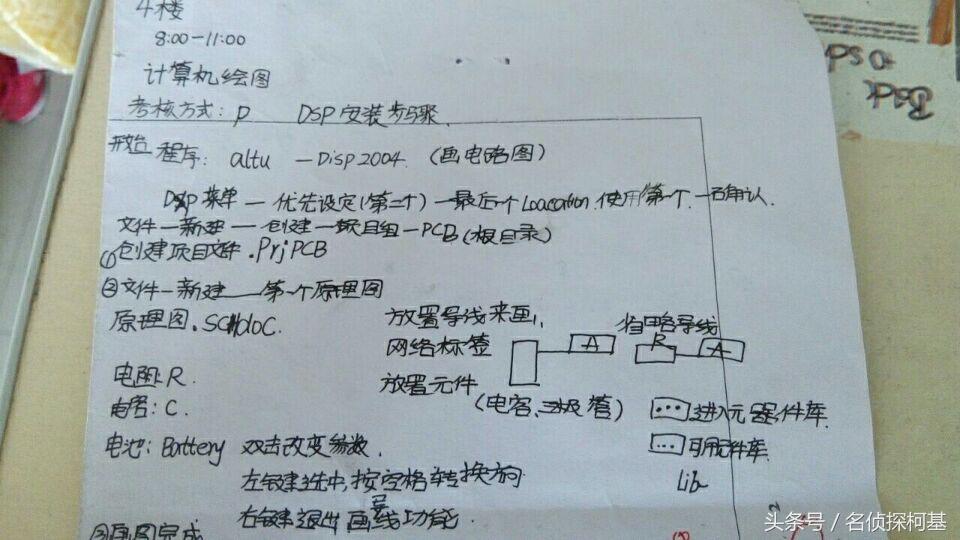 4楼
8:00—11:00
计算机绘图
考核方式: P DSP安装步骤.
开始 程序: altu — Disp 2004. (画电路图)
DXP菜单 — 优先设定(第二个) — 最后个Loacation 使用第一个. —确认.
文件—新建 — 创建—项目组—PCB(根目录)
①创建项目文件.PrjPCB
②文件—新建——第一个原理图
原理图.SCHDOC.
放置导线来画,
省略导线
网络标签
A
R
A
电阻: R.
放置元件
电容: C.
(电容、三极管)
... 进入元器件库.
电池: Battery 双击改变参数.
... 可用元件库.
左键选中,按空格转换方向
Lib
右键退出画导线功能.
③原图完成
Back
头条号 / 名侦探柯基